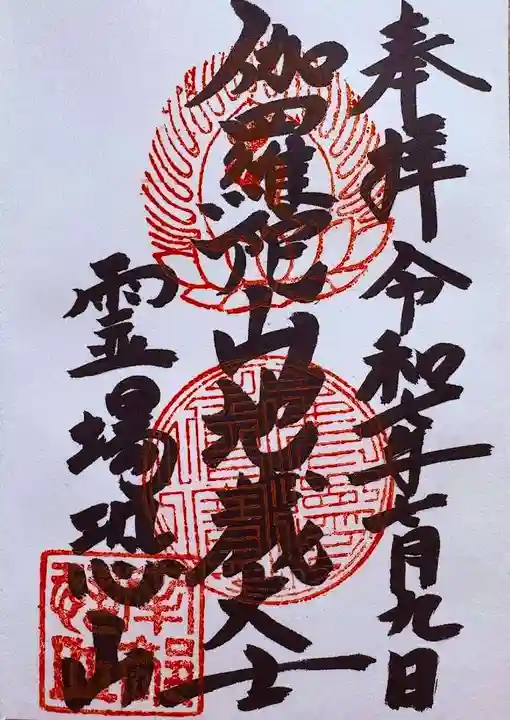 奉拝 令和 年 月九日
伽羅陀山地蔵大士
霊場恐山